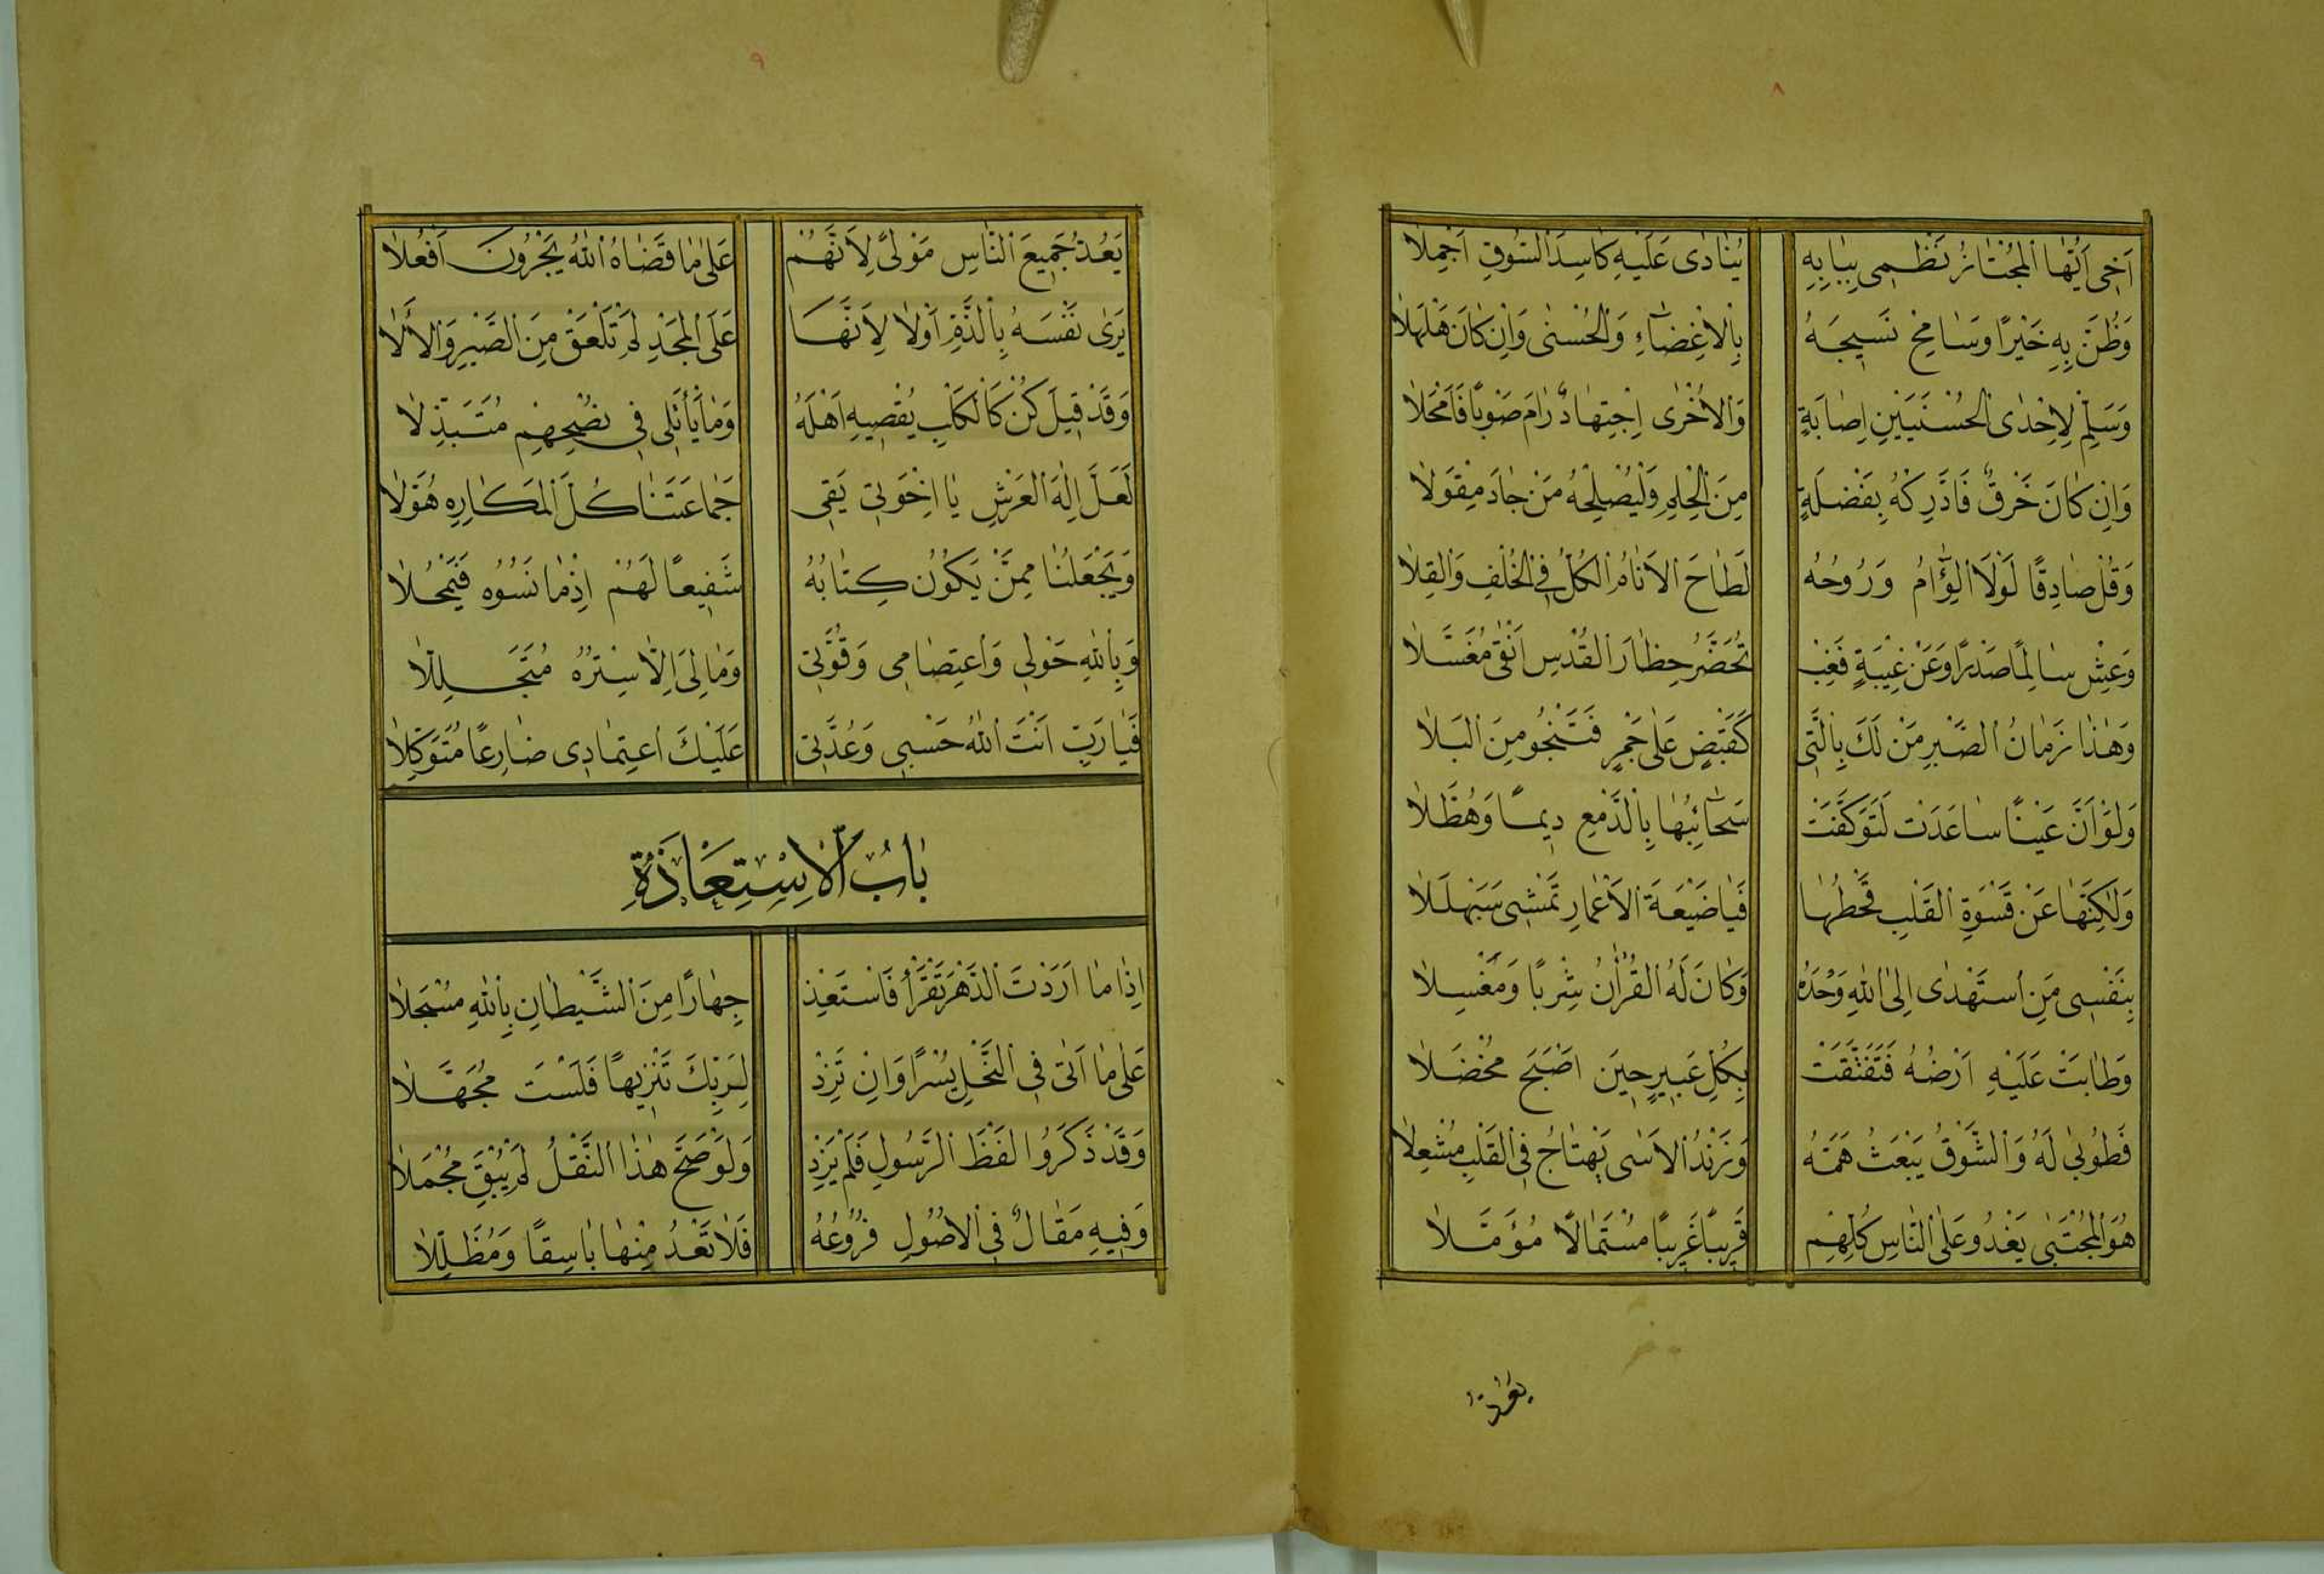 ٨
اَخِى اَيُّهَا الْمُجْتَازُ نَظْمِى بِبَابِهِ يُنَادٰى عَلَيْهِ كَاسِدَ السُّوقِ اَجْمِلَا
وَظُنَّ بِهِ خَيْرًا وَسَامِحْ نَسِيجَهُ بِالْاِغْضَاءِ وَالْحُسْنٰى وَاِنْ كَانَ هَلْهَلَا
وَسَلِّمْ لِاِحْدَى الْحُسْنَيَيْنِ اِصَابَةٍ وَالْاُخْرٰى اِجْتِهَادٌ رَامَ صَوْبًا فَاَمْحَلَا
وَاِنْ كَانَ خَرْقٌ فَادَّرِكْهُ بِفَضْلَةٍ مِنَ الْحِلْمِ وَلْيُصْلِحْهُ مَنْ جَادَ مِقْوَلَا
وَقُلْ صَادِقًا لَوْلَا الْوِئَامُ وَرُوحُهُ لَطَاحَ الْاَنَامُ الْكُلُّ فِى الْخُلْفِ وَالْقِلَا
وَعِشْ سَالِمًا صَدْرًا وَعَنْ غِيبَةٍ فَغِبْ تُحَضَّرْ حِظَارَ الْقُدْسِ اَنْقٰى مُغَسَّلَا
وَهٰذَا زَمَانُ الصَّبْرِ مَنْ لَكَ بِالَّتِى كَقَبْضٍ عَلٰى جَمْرٍ فَتَنْجُو مِنَ الْبَلَا
وَلَوْ اَنَّ عَيْنًا سَاعَدَتْ لَتَوَكَّفَتْ سَحَائِبُهَا بِالدَّمْعِ دِيمًا وَهُطَّلَا
وَلٰكِنَّهَا عَنْ قَسْوَةِ الْقَلْبِ قَحْطُهَا فَيَا ضَيْعَةَ الْاَعْمَارِ تَمْشِى سَبَهْلَلَا
بِنَفْسِى مَنِ اسْتَهْدٰى اِلَى اللّٰهِ وَحْدَهُ وَكَانَ لَهُ الْقُرْاٰنُ شِرْبًا وَمَغْسِلَا
وَطَابَتْ عَلَيْهِ اَرْضُهُ فَتَفَتَّقَتْ بِكُلِّ عَبِيرٍ حِينَ اَصْبَحَ مُخْضَلَا
فَطُوبٰى لَهُ وَالشَّوْقُ يَبْعَثُ هَمَّهُ وَزَنْدُ الْاَسٰى يَهْتَاجُ فِى الْقَلْبِ مُشْعِلَا
هُوَ الْمُجْتَبٰى يَغْدُو عَلَى النَّاسِ كُلِّهِمْ قَرِيبًا غَرِيبًا مُسْتَمَالًا مُؤَمَّلَا
يعد
٩
يَعُدُّ جَمِيعَ النَّاسِ مَوْلًى لِاَنَّهُمْ عَلٰى مَا قَضَاهُ اللّٰهُ يَجْرُونَ اَفْعُلَا
يَرٰى نَفْسَهُ بِالذَّمِّ اَوْلَا لِاَنَّهَا عَلَى الْمَجْدِ لَمْ تَلْعَقْ مِنَ الصَّبْرِ وَالْاَلَا
وَقَدْ قِيلَ كُنْ كَالْكَلْبِ يُقْصِيهِ اَهْلُهُ وَمَا يَأْتَلِى فِى نُصْحِهِمْ مُتَبَذِّلَا
لَعَلَّ اِلٰهَ الْعَرْشِ يَا اِخْوَتِى يَقِى جَمَاعَتَنَا كُلَّ الْمَكَارِهِ هُوَّلَا
وَيَجْعَلُنَا مِمَّنْ يَكُونُ كِتَابُهُ شَفِيعًا لَهُمْ اِذْ مَا نَسُوهُ فَيَمْحُلَا
وَبِاللّٰهِ حَوْلِى وَاعْتِصَامِى وَقُوَّتِى وَمَا لِى اِلَّا سِتْرُهُ مُتَجَلِّلَا
فَيَا رَبِّ اَنْتَ اللّٰهُ حَسْبِى وَعُدَّتِى عَلَيْكَ اعْتِمَادِى ضَارِعًا مُتَوَكِّلَا
بَابُ الْاِسْتِعَاذَةِ
اِذَا مَا اَرَدْتَ الدَّهْرَ تَقْرَأُ فَاسْتَعِذْ جِهَارًا مِنَ الشَّيْطَانِ بِاللّٰهِ مُسْجَلَا
عَلٰى مَا اَتٰى فِى النَّحْلِ يُسْرًا وَاِنْ تَزِدْ لِرَبِّكَ تَنْزِيهًا فَلَسْتَ مُجَهَّلَا
وَقَدْ ذَكَرُوا لَفْظَ الرَّسُولِ فَلَمْ يَزِدْ وَلَوْ صَحَّ هٰذَا النَّقْلُ لَمْ يُبْقِ مُجْمَلَا
وَفِيهِ مَقَالٌ فِى الْاُصُولِ فُرُوعُهُ فَلَا تَعْدُ مِنْهَا بَاسِقًا وَمُظَلِّلَا